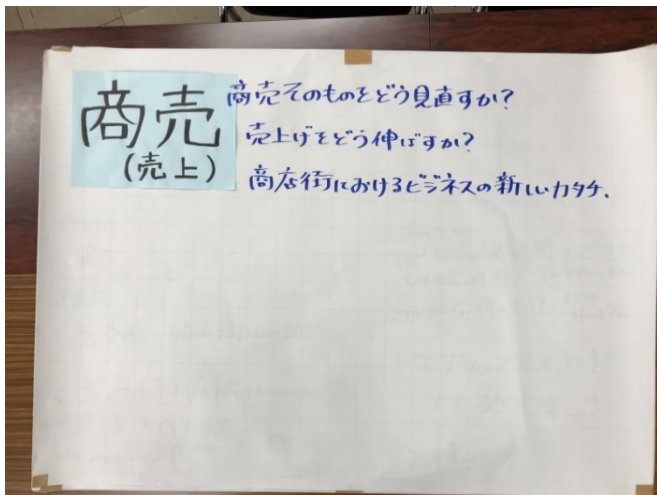 商売
(売上)
商売そのものをどう見直すか?
売上げをどう伸ばすか?
商店街におけるビジネスの新しいカタチ.